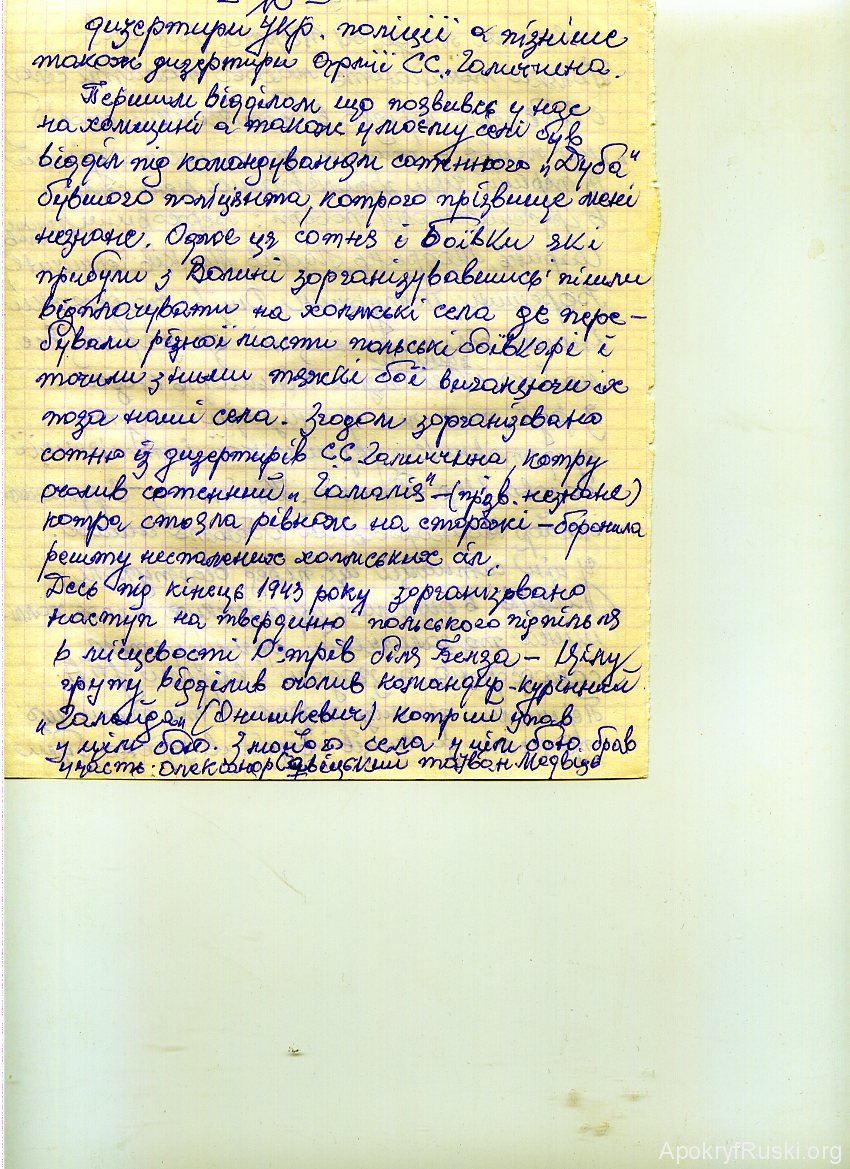 дизертири Укр. поліції а пізніше
також дизертири Армії СС „Галичина.
Першим відділом що появивсь у нас
на холмщині а також у моєму селі був
відділ під командуванням сотенного „Дуба"
бувшого поліцянта, котрого прізвище мені
незнане. Одное ця сотня і боївки які
прибули з Волині зорганізувавшись пішли
відплачувати на холмські села де пере-
бували різної масти польські боївкарі і
точили з ними тяжкі бої виганяючи їх
поза наші села. Згодом зорганізовано
сотню із дизертирів СС Галичина, котру
очолив сотенний „Галайда" – (прізв. незнане)
котра стояла рівнож на сторожі – боронила
решту неспалених холмських сіл.
Десь під кінець 1943 року зорганізовано
наступ на твердиню польського підпілля
в місцевості Острів біля Белза – Цілу
групу відділив очолив командир-курінний
„Галайда„ (Онишкевич) котрий упав
у цім бою. З мойого села у цім бою брав
участь: Олександр та Іван Медвідь
ApokryfRuski.org